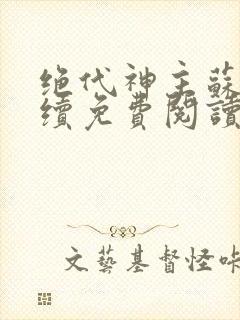 绝代神主蘇
續免費閱讀
文藝基督怪咔